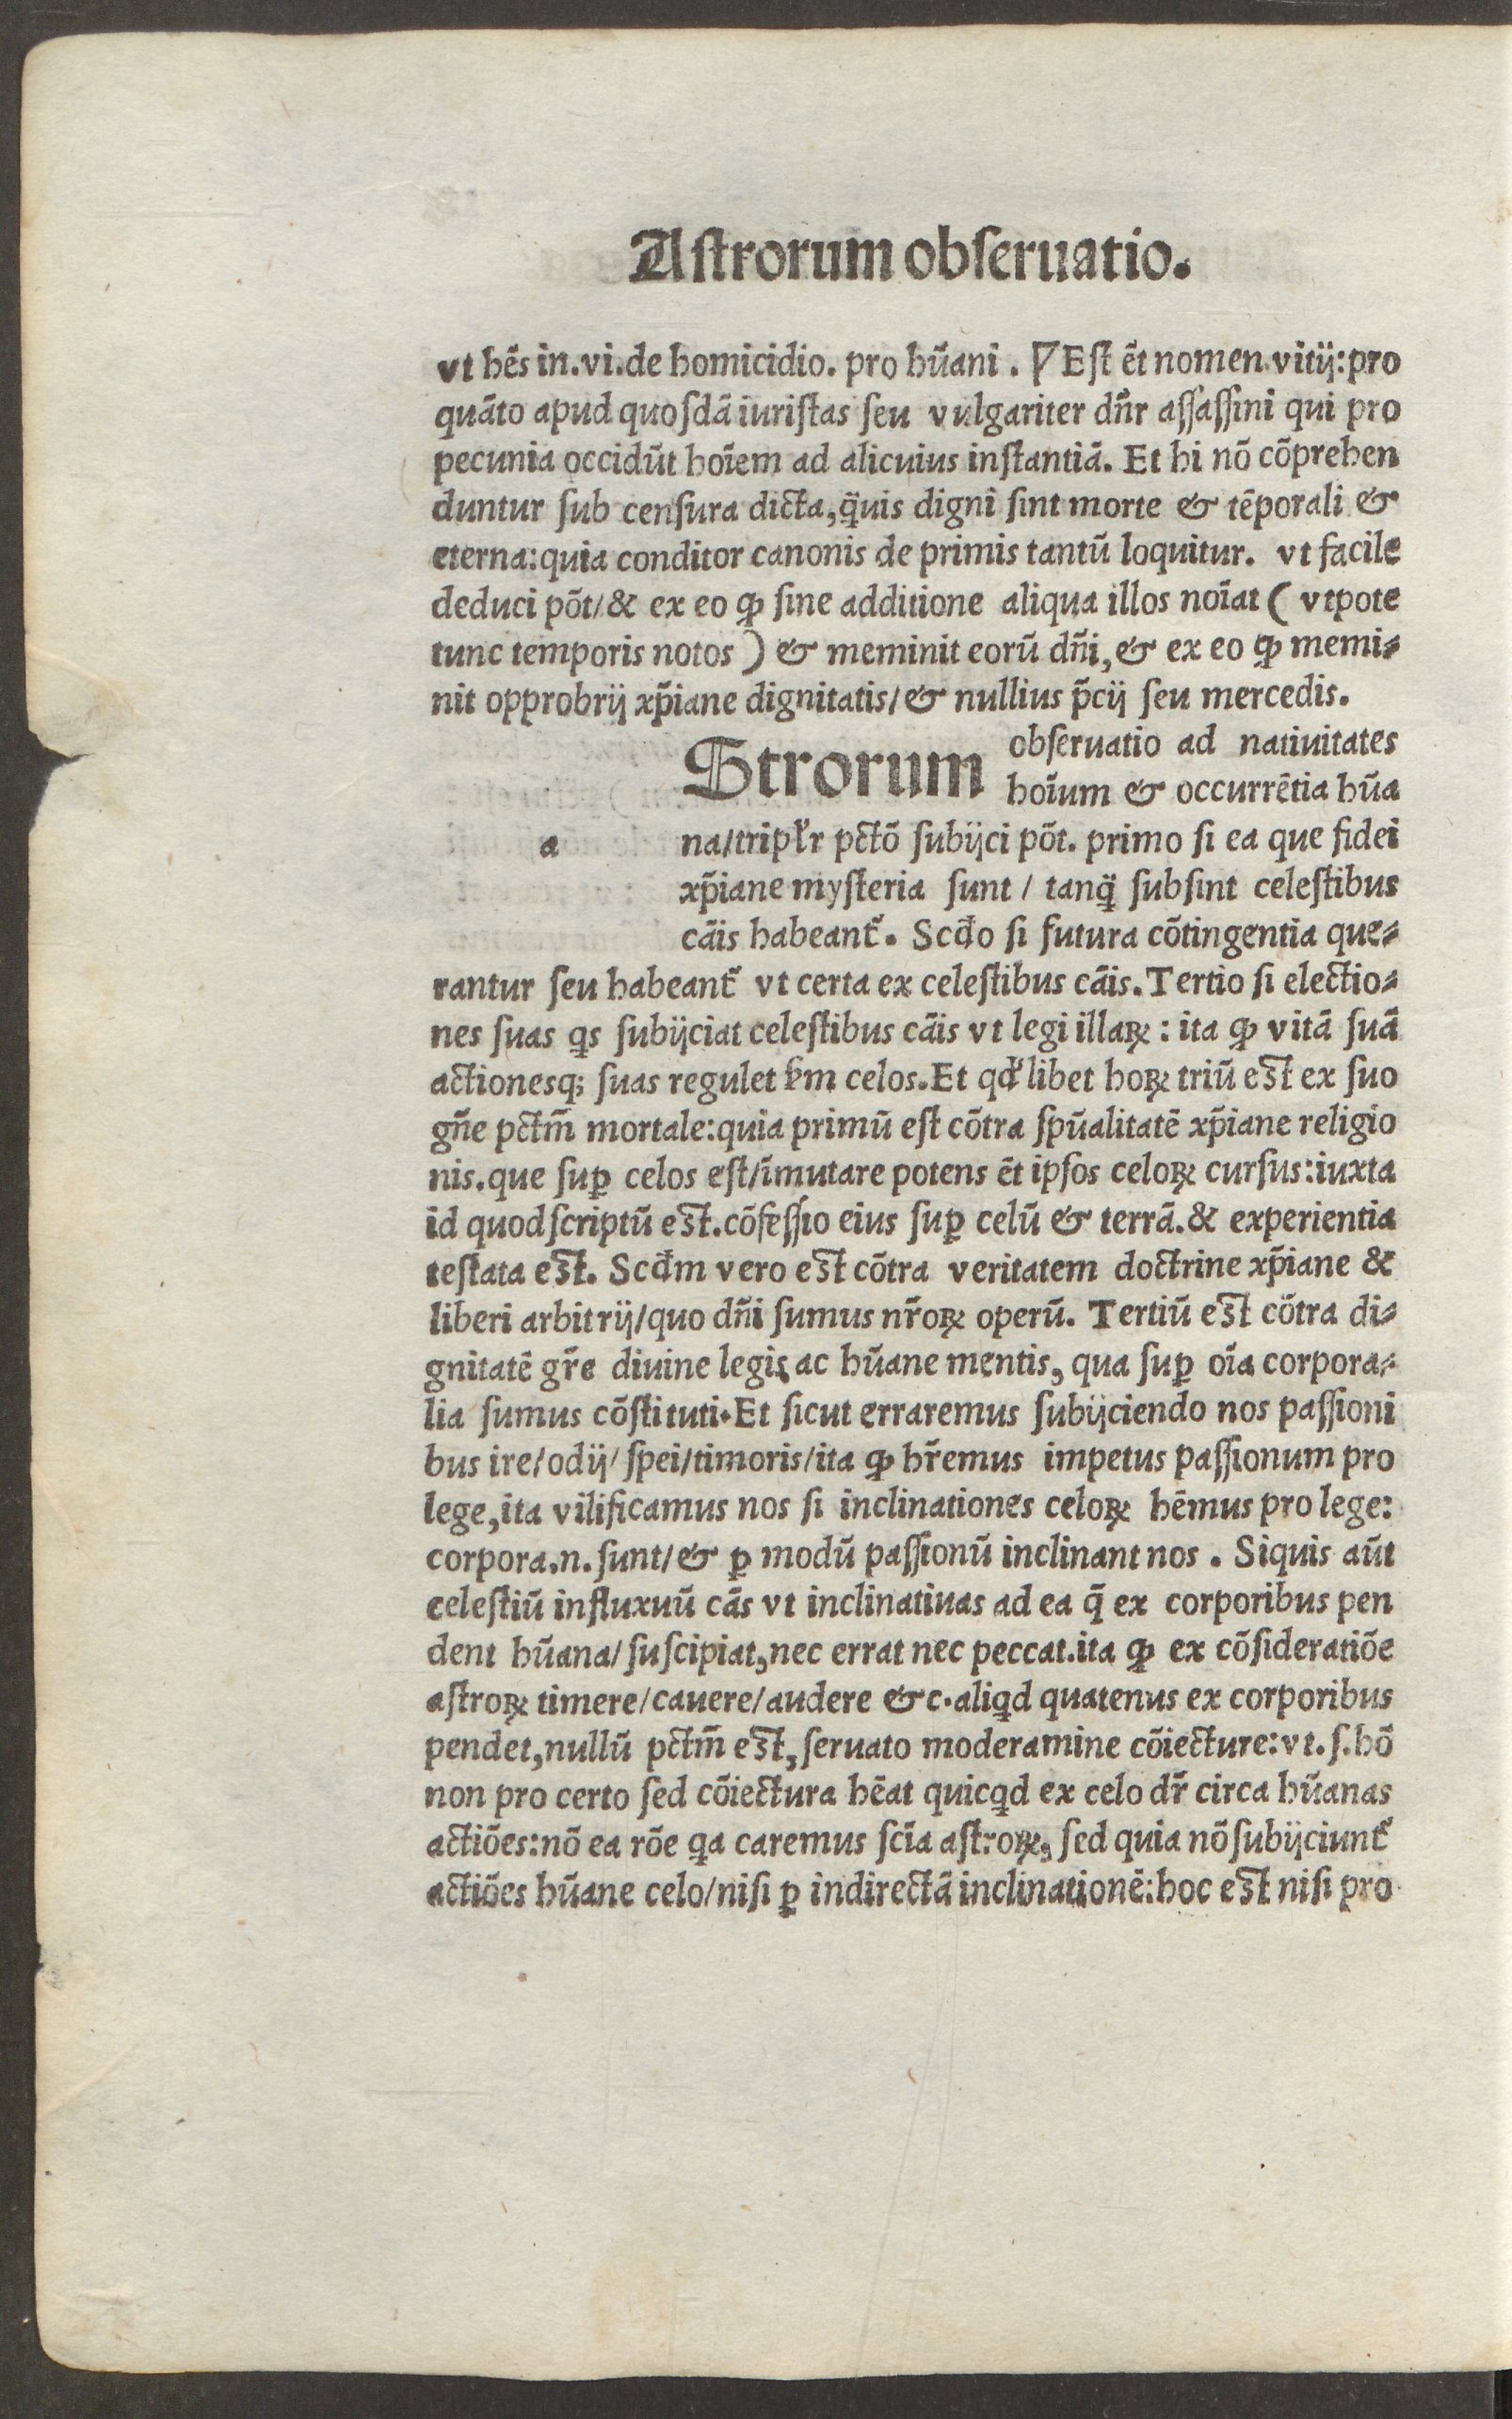 Astrorum obſeruatio.
vt hēs in.vi.de homicidio. pro hūani. ꝩ Eſt ēt nomen.vitij:pro
quāto apud quoſdā iuriſtas ſeu vulgariter dn̄r aſſaſſini qui pro
pecunia occidūt hoīem ad alicuius inſtantiā. Et hi nō cōprehen
duntur ſub cenſura dicta,q̄uis digni ſint morte & tēporali &
eterna:quia conditor canonis de primis tantū loquitur. vt facile
deduci pōt/& ex eo ꝙ ſine additione aliqua illos noīat ( vtpote
tunc temporis notos ) & meminit eorū dn̄i,& ex eo ꝙ memi⸗
nit opprobrij xp̄iane dignitatis/& nullius p̄cij ſeu mercedis.
Strorum obſeruatio ad natiuitates
hoīum & occurrētia hūa
a na/tripl̄r pctō ſubijci pōt. primo ſi ea que fidei
xp̄iane myſteria ſunt/ tanq̄ ſubſint celeſtibus
cāis habeant᷑. Scd̄o ſi futura cōtingentia que⸗
rantur ſeu habeant᷑ vt certa ex celeſtibus cāis.Tertio ſi electio⸗
nes ſuas qs ſubijciat celeſtibus cāis vt legi illaꝝ: ita ꝙ vitā ſuā
actionesq; ſuas regulet ẜm celos.Et qd̓libet hoꝝ triū eſt ex ſuo
gn̄e pctm̄ mortale:quia primū eſt cōtra ſpūalitatē xp̄iane religio
nis.que ſuꝑ celos eſt/īmutare potens ēt ipſos celoꝝ curſus:iuxta
id quod ſcriptū eſt.cōfeſſio eius ſuꝑ celū & terrā.& experientia
teſtata eſt. Scd̄m vero eſt cōtra veritatem doctrine xp̄iane &
liberi arbitrij/quo dn̄i ſumus nr̄oꝝ operū. Tertiū eſt cōtra di⸗
gnitatē gr̄e diuine legis ac hūane mentis, qua ſuꝑ oīa corpora⸗
lia ſumus cōſtituti.Et ſicut erraremus ſubijciendo nos paſſioni
bus ire/odij/ſpei/timoris/ita ꝙ hr̄emus impetus paſſionum pro
lege,ita vilificamus nos ſi inclinationes celoꝝ hēmus pro lege:
corpora.n.ſunt/& ꝑ modū paſſionū inclinant nos. Siquis aūt
celeſtiū influxuū cās vt inclinatiuas ad ea q̄ ex corporibus pen
dent hūana/ſuſcipiat,nec errat nec peccat.ita ꝙ ex cōſideratiōe
aſtroꝝ timere/cauere/audere &c.aliqd quatenus ex corporibus
pendet,nullū pctm̄ eſt,ſeruato moderamine cōiecture:vt.ſ.hō
non pro certo ſed cōiectura hēat quicqd ex celo dr̄ circa hūanas
actiōes:nō ea rōe qa caremus ſcīa aſtroꝝ, ſed quia nō ſubijciunt᷑
actiōes hūane celo/niſi ꝑ indirectā inclinationē:hoc eſt niſi pro